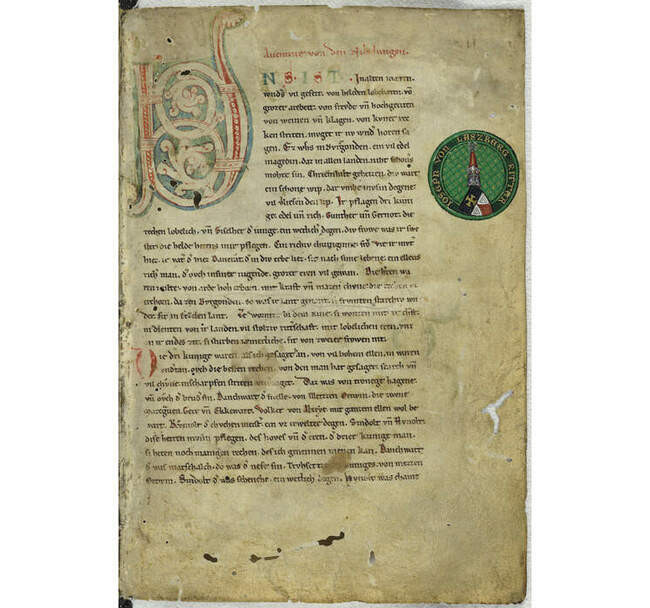 Auenture von den Nibelungen.
NS. IST. In alten mæren
wnds vil geseit. von helden lobebæren. vn̄
grozer arebeit. von frevde vn̄ hochgeciten
von weinen vn̄ klagen. von kvner rec
ken striten. mvget ir nv wnd' horen sa
gen. Ez whs in Bvrgonden. ein vil edel
magedin. daz in allen landen. niht schoners
mohte sin. Chriemhilt geheizen. div wart
ein schone wip. dar vmbe mvsin degene.
vil verliesen den lip. Ir pflagen dri kuni
ge. edel vn̄ rich. Gunther vn̄ Gernot. die
rechen lobelich. vn̄ Giselher d' iunge. ein wetlich degen. div frowe was ir swe
ster. die helde hetens inir pflegen. Ein richiv chuniginne. frov Vte ir mvt'
hiez. ir vat' d' hiez Dancrat. d' in div erbe liez. sit nach sime lebene. ein ellens
rich man. d' ovch insiner iugende. grozer eren vil gewan. Die herren wa
ren milte. von arde hoh erborn. mit kraft vn̄ mazen chvne. die rechen vz
erchorn. da zen Bvrgonden. so was ir lant genant. si frvmten starchiv wn
der. sit in Etcelen lant. Ze Wormze bi dem Rine. si wonten mit ir chraft.
in dienten von ir landen. vil stolziv ritt'schaft. mit lobelichen eren. vnz
an ir endes zit. si sturben iæmerliche. sit von zweier frowen nit.
Die dri kunige waren. als ich gesaget han. von vil hohem ellen. in waren
vndertan. ovch die besten rechen. von den man hat gesaget. starch vn̄
vil chvne. in scharpfen striten vnverzaget. Daz was von Tronege Hagene.
vn̄ ovch d' brvd' sin. Danchwart d' snelle. von Metzen Ortwin. die zwene
marcgrauen. Gere vn̄ Ekkewart. Volker von Alceye. mit gantzem ellen wol be
wart. Rvmolt d' chvchenmeist'. ein vz erwelter degen. Sindolt vn̄ Hvnolt.
dise herren mvsin pflegen. des hoves vn̄ d' eren. d' drier kunige man.
si heten noch manigen rechen. des ich genennen nienen kan. Danchwart
d' was marschalch. do was d' neve sin. Trvhsetze des kuniges. von Metzen
Ortwin. Sindolt d' was schenche. ein wetlich degen. Hvnolt was cham
IOSEPH VON LASZBERG RITTER